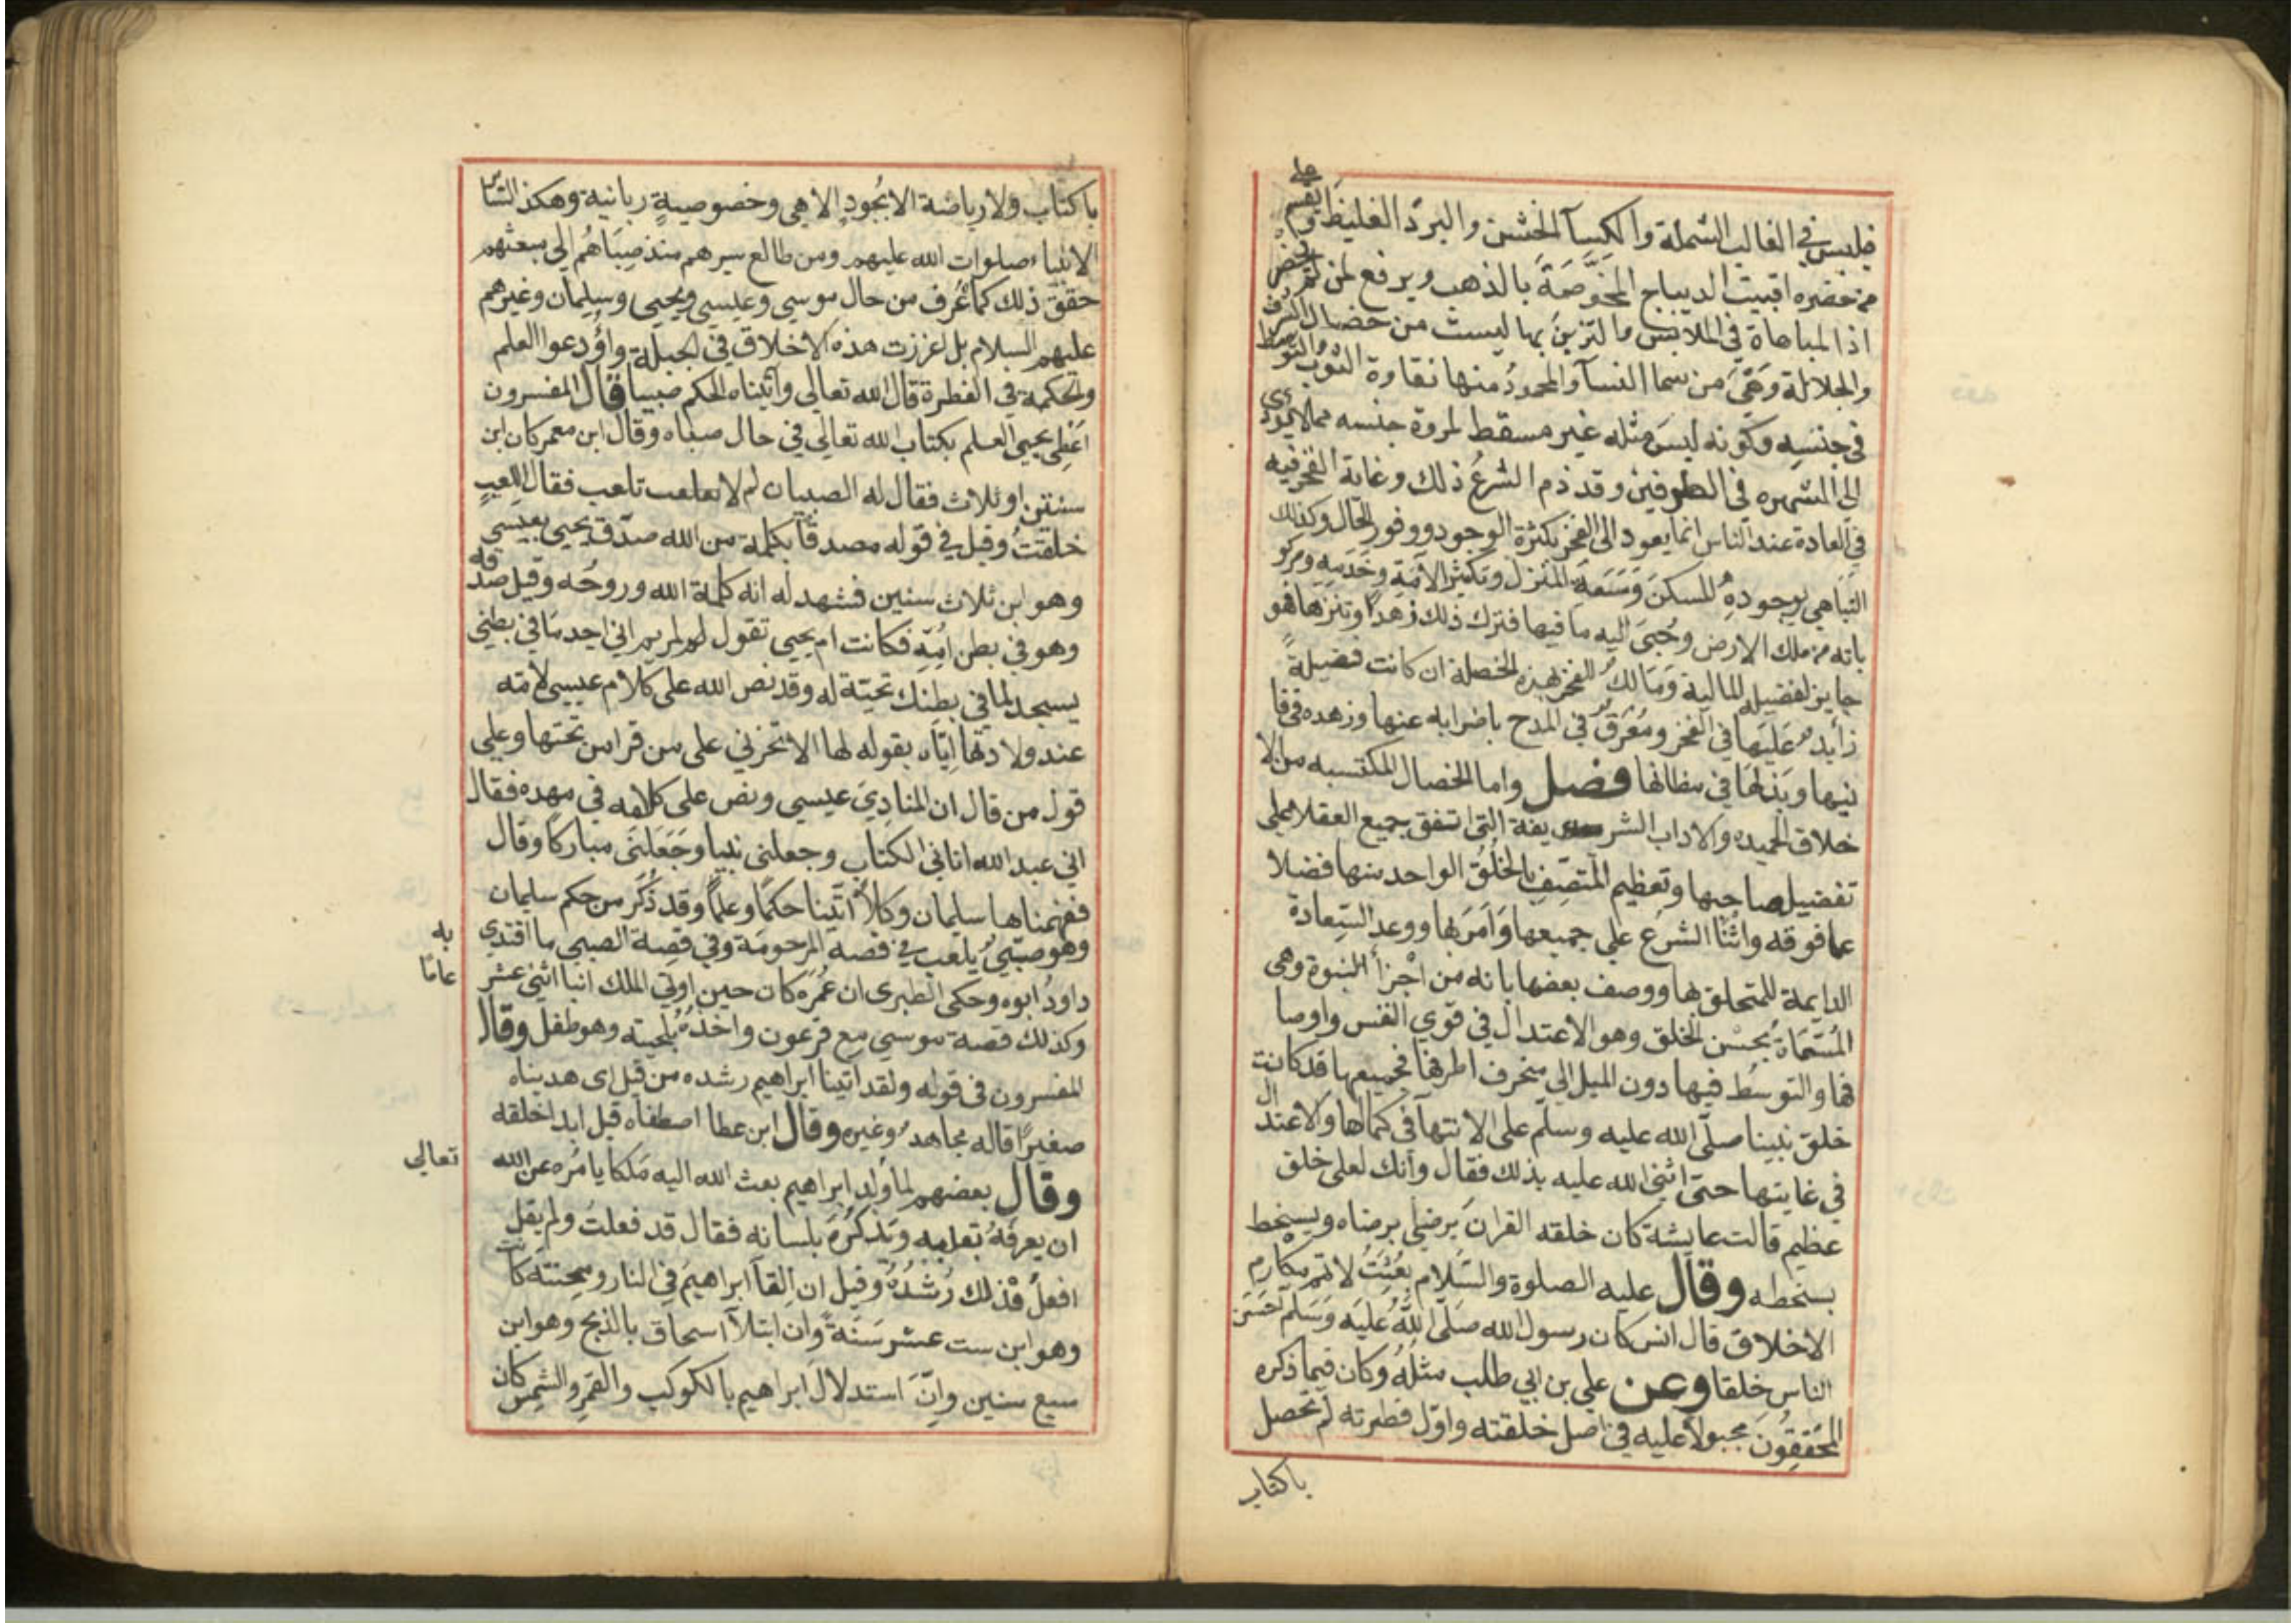 فلبس في الغالب الشملة والكسآ الخشن والبرد الغليظ ويقسم على
من حضره اقبيت الديباج المخوصة بالذهب ويرفع لمن لم يحضر
اذا المباهاة في الملابس والتزين بها ليست من خصال الشرف
والجلالة وهي من سما النسآ والمحمود منها نقاوة الثوب والتوسط
في جنسه وكونه ليس مثله غير مسقط لمروة جنسه مما لا يودي
الي الشهره في الطرفين وقد ذم الشرع ذلك وغاية الفخر فيه
في العادة عند الناس انما يعود الى الفخر بكثرة الوجود ووفور الحال وكذلك
التباهي بجوده المسكن وسعة المنزل وتكثير الآمية وخدمه ومركو
بانه من ملك الارض وجبي اليه ما فيها فترك ذلك زهدا وتنزها فهو
جايز لفضيله المالية ومالك للفخر بهذه الخصلة ان كانت فضيلة
زايد عليها في الفخر ومعرق في المدح باضرابه عنها وزهده في فا
نيها وبذلها في مظانها فصل واما الخصال المكتسبه من الا
خلاق الحميده والاداب الشر يفة التي اتفق جميع العقلا على
تفضيل صاحبها وتعظيم المتصف بالخلق الواحد منها فضلا
عما فوقه واثنا الشرع علي جميعها وامر بها ووعد السعادة
الدايمة للمتخلق بها ووصف بعضها بانه من اجزأ النبوة وهي
المسماة بحسن الخلق وهو الاعتدال في قوي النفس واوصا
فها والتوسط فيها دون الميل الي منحرف اطرافها فجميعها قد كانت
خلق نبينا صلى الله عليه وسلم على الانتهآ في كمالها والاعتدال
في غايتها حتى اثنى الله عليه بذلك فقال وانك لعلى خلق
عظيم قالت عايشة كان خلقه القران يرضى برضاه ويسخط
بسخطه وقال عليه الصلوة والسلام بعثت لاتمم مكارم
الاخلاق قال انس كان رسول الله صلى الله عليه وسلم احسن
الناس خلقا وعن علي بن ابي طلب مثله وكان فيما ذكره
المحققون مجبولا عليه في اصل خلقته واول فطرته لم تحصل
باكتاب
باكتاب ولا رياضة الا بجود الاهي وخصوصية ربانية وهكذا لسائر
الانبياء صلوات الله عليهم ومن طالع سيرهم منذ صباهم الي مبعثهم
حقق ذلك كما عرف من حال موسي وعيسي ويحيي وسليمان وغيرهم
عليهم السلام بل غرزت هذه الاخلاق في الجبلة واودعوا العلم
والحكمة في الفطرة قال الله تعالي وآتيناه الحكم صبيا قال المفسرون
اعطى يحيي العلم بكتاب الله تعالي في حال صباه وقال ابن معمر كان ابن
سنتين او ثلاث فقال له الصبيان لم لا تلعب فقال اللعب
خلقت وقيل في قوله مصدقا بكلمة من الله صدق يحيي بعيسي
وهو ابن ثلاث سنين فشهد له انه كلمة الله وروحه وقيل صدقه
وهو في بطن امه فكانت ام يحيي تقول لمريم اني اجد ما في بطني
يسجد لما في بطنك تحية له وقد نص الله على كلام عيسي لامه
عند ولادتها اياه بقوله لها الا تحزني على من قرا من تحتها وعلي
قول من قال ان المنادي عيسي ونص على كلامه في مهده فقال
اني عبد الله اتاني الكتاب وجعلني نبيا وجعلني مباركا وقال
ففهمناها سليمان وكلا اتينا حكما وعلما وقد ذكر من حكم سليمان
وهو صبي يلعب في قصة المرحومة وفي قصة الصبي ما اقتدي به
داود ابوه وحكي الطبري ان عمره كان حين اوتي الملك اثني عشر عاما
وكذلك قصة موسي مع فرعون واخذه بلحيته وهو طفل وقال
المفسرون في قوله ولقد اتينا ابراهيم رشده من قبل اى هديناه
صغيرا قاله مجاهد وغيره وقال ابن عطا اصطفاه قبل ابدا خلقه
وقال بعضهم لما ولد ابراهيم بعث الله اليه ملكا يامره عن الله تعالي
ان يعرفه بقلبه ويذكره بلسانه فقال قد فعلت ولم يقل
افعل فذلك رشده وقيل ان القآ ابراهيم في النار ومحنته كانت
وهو ابن ست عشر سنة وان ابتلآ اسحاق بالذبح وهو ابن
سبع سنين وان استدلال ابراهيم بالكوكب والقمر والشمس كان